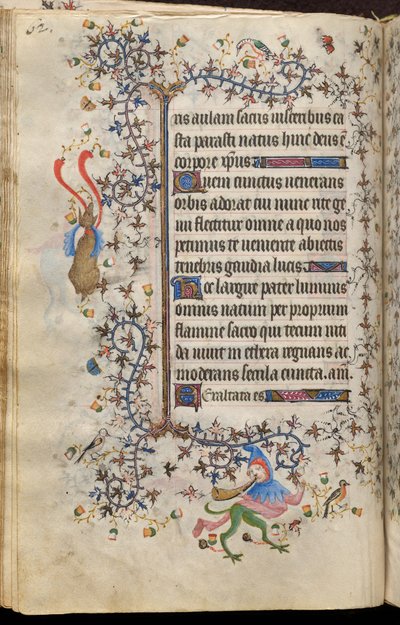 62.
ris aulam sacris visceribus ca
sta parasti natus hinc deus ē
corpore xp̄us
Quem cunctus venerans
orbis adorat cui nunc rite ge
nu flectitur omne a quo nos
petimus te veniente abiectis
tenebris gaudia lucis
Hoc largire pater luminis
omnis natum per proprium
flamine sacro qui tecum niti
da vivit in ethera regnans ac
moderans secula cuncta. am̄
Exaltata es